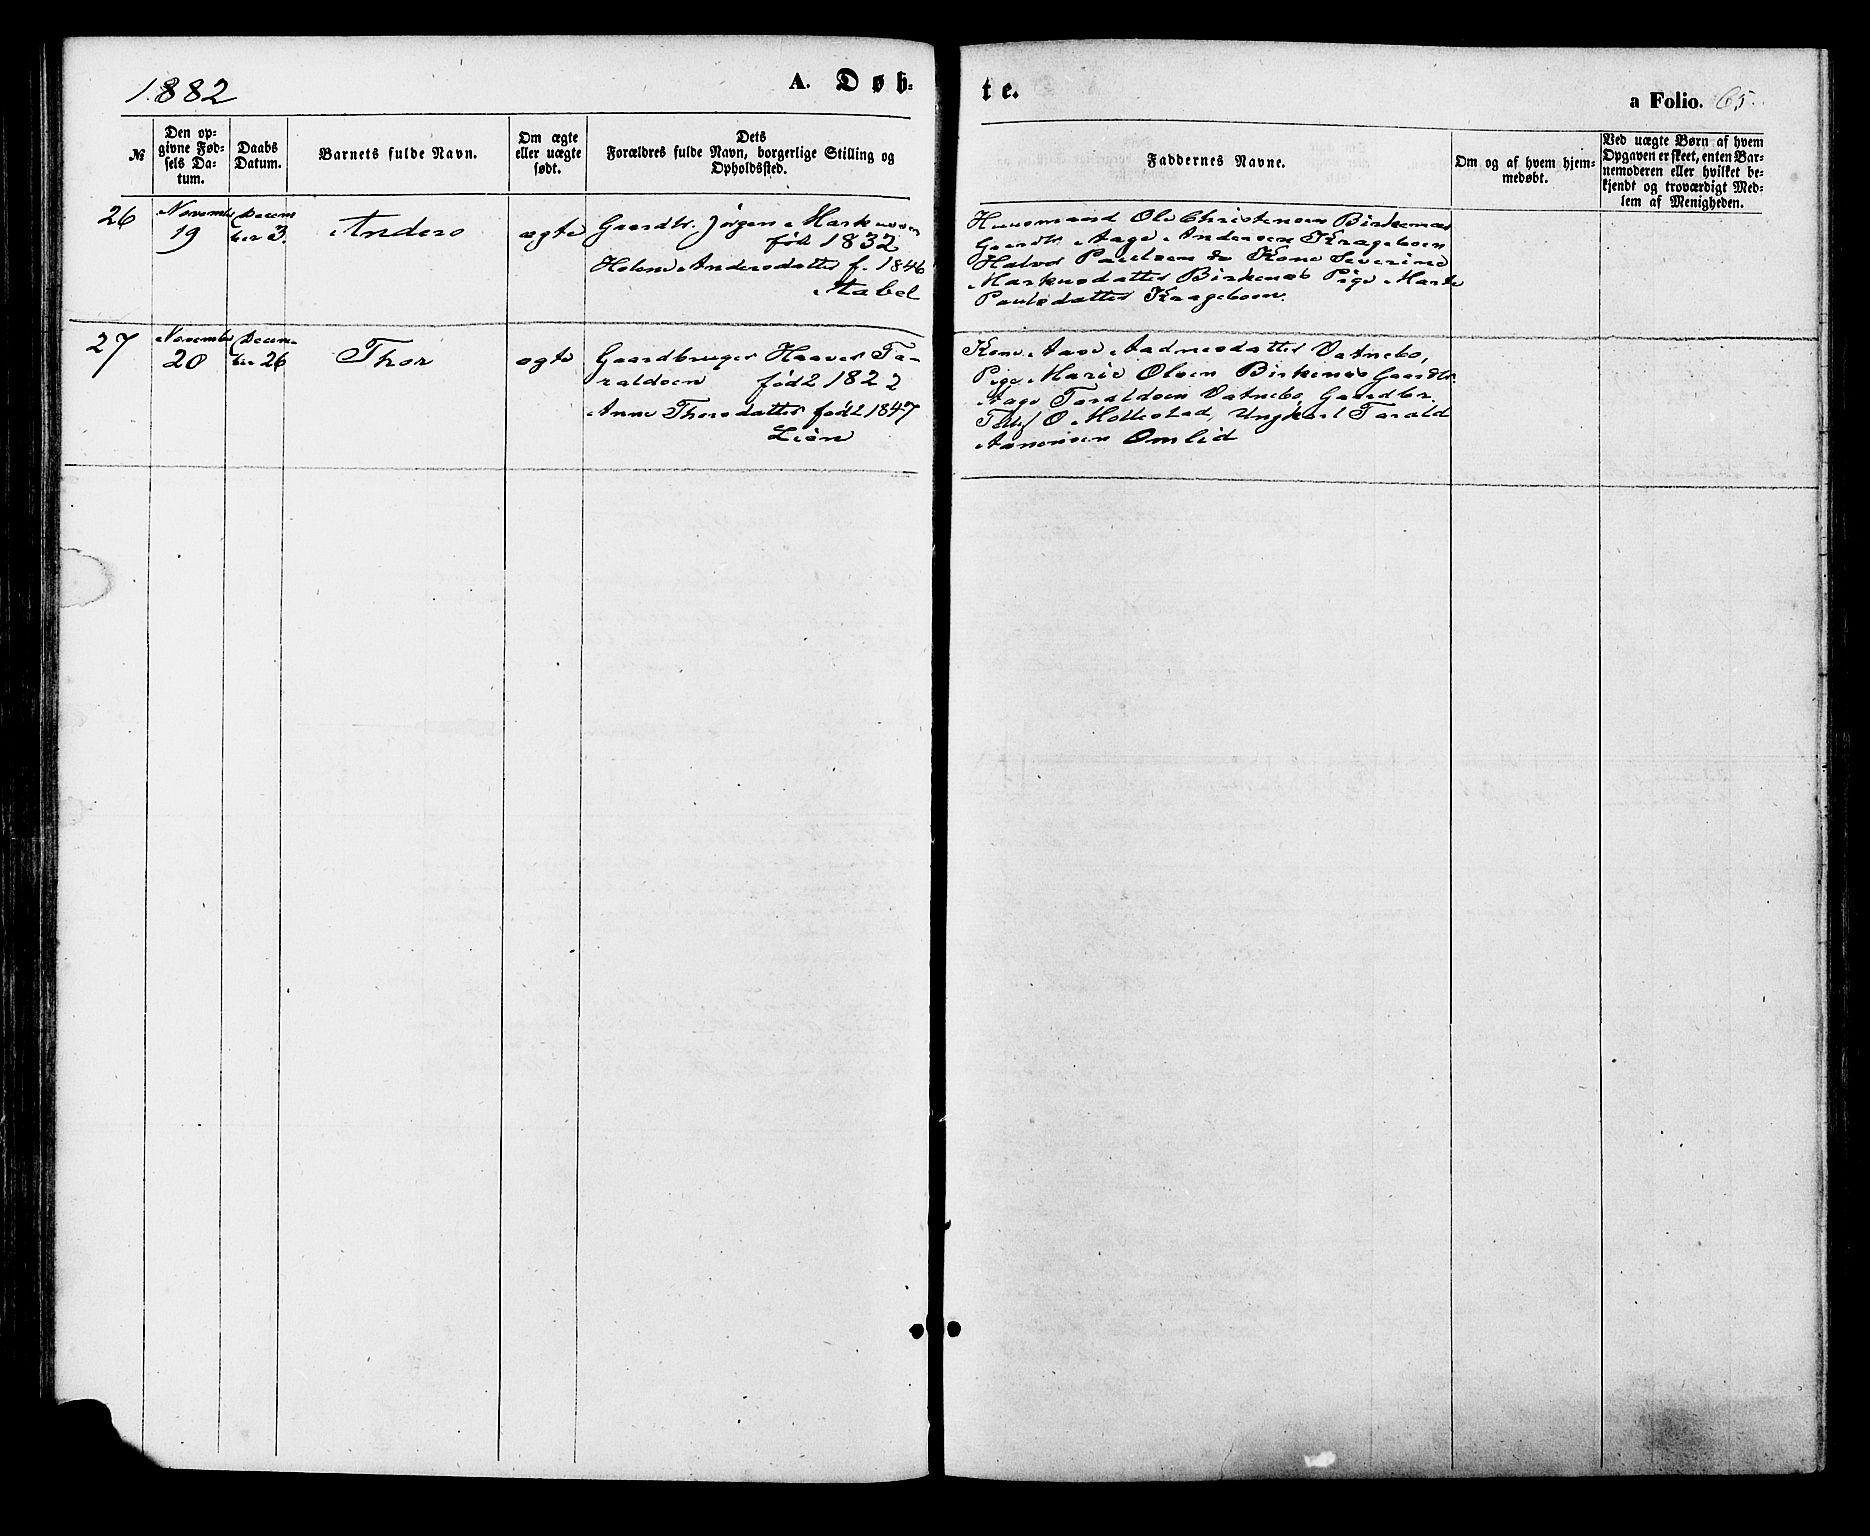 1882
A. Døb-
te.
a Folio. 65.
№
Den op-
givne Fød-
sels Da-
tum.
Daabs
Datum.
Barnets fulde Navn.
Om ægte
eller uægte
født.
Dets
Forældres fulde Navn, borgerlige Stilling og
Opholdssted.
Faddernes Navne.
Om og af hvem hjem-
medøbt.
Ved uægte Børn af hvem
Opgaven er skeet, enten Bar-
nemoderen eller hvilket be-
kjendt og troværdigt Med-
lem af Menigheden.
26
November
19
Decem
ber 3.
Anders
ægte
Gaardbr. Jørgen Markussen
født 1832
Helene Andersdatter f. 1846
Stabel
Huusmaand Ole Christensen Birkenæs
Gaardbr Aage Andersen Krageboen
Halvor Paulsen & Kone Severine
Markusdatter Birkenæs Pige Marte
Paulsdatter Krageboen.
27
November
20
Decem-
ber 26
Thor
ægte
Gaardbruger Haaver Ta-
raldsen født 1822
Anne Thorsdatter født 1847
Lien
Kone Aase Aadnesdatter Vatnebo,
Pige Marie Olsen Birkenæs Gaardbr.
Aage Taraldsen Vatnebo, Gaardbr.
O. Mollestad, Ungkarl Tarald
Aanonsen Omlid